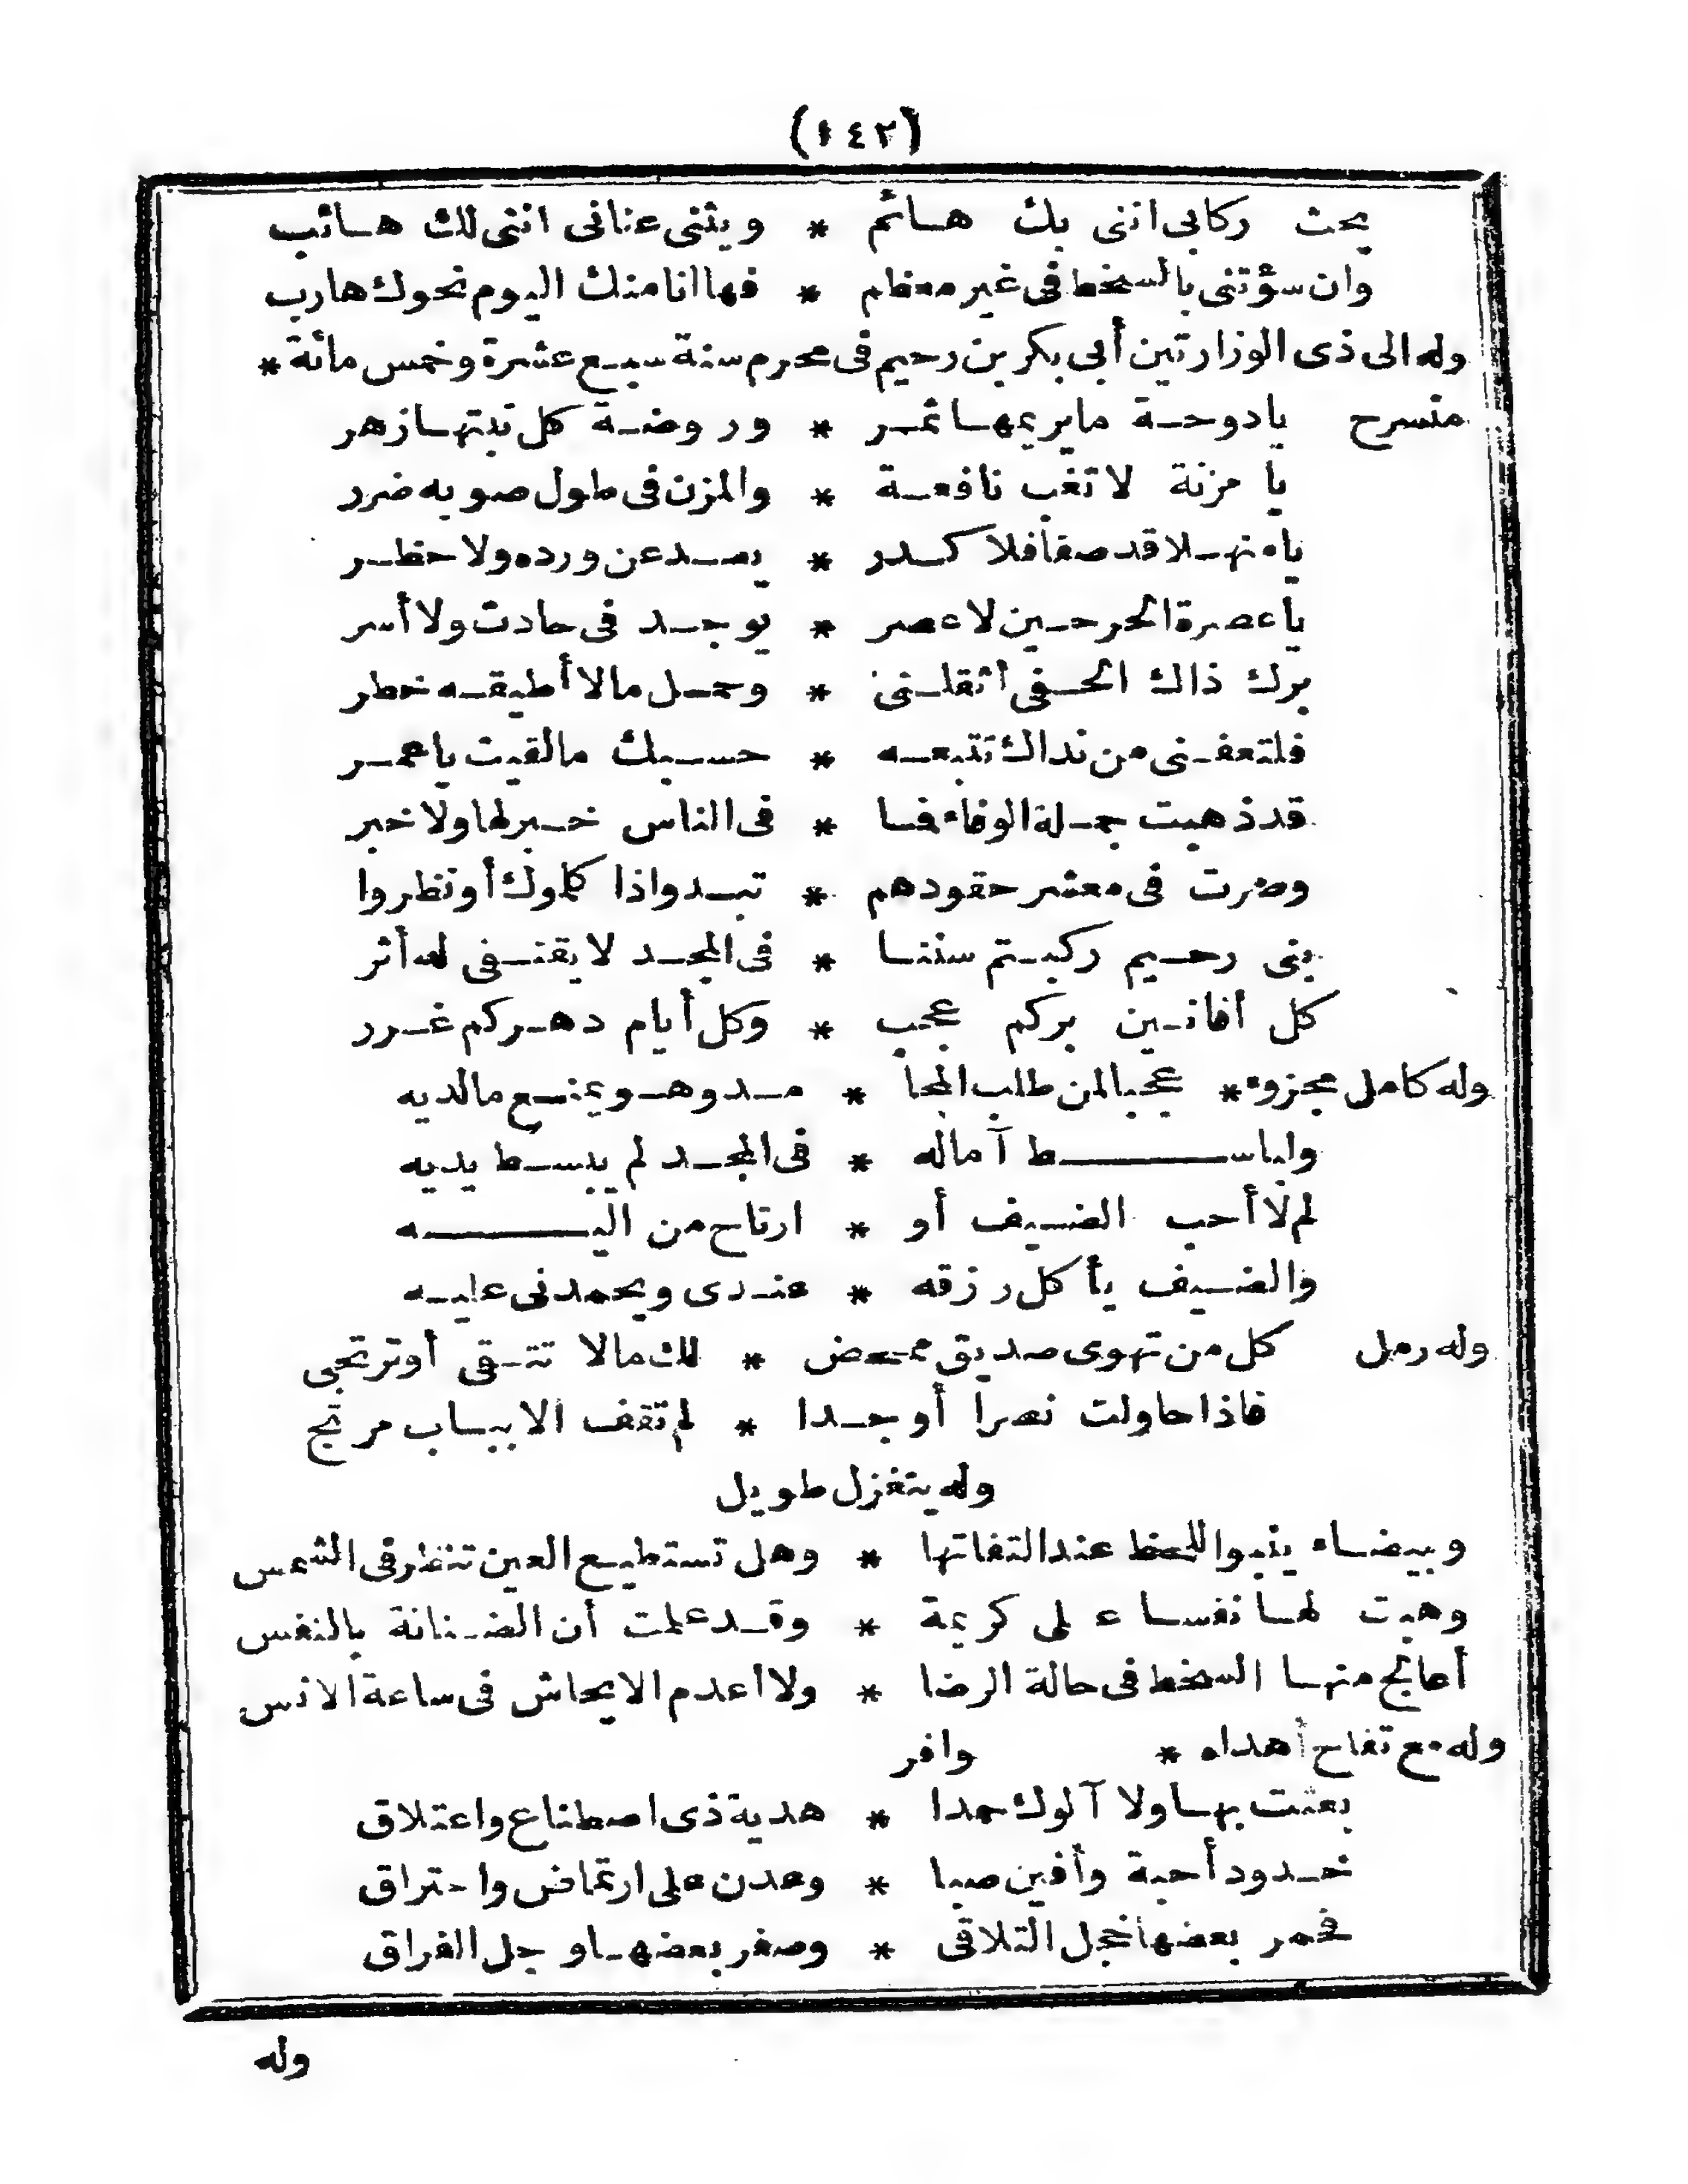 (١٤٢)
يحث ركابى اننى بك هائم * ويثنى عنانى اننى لك هائب
وان سؤتنى بالسخط فى غير معظم * فها انا منك اليوم نحوك هارب
وله الى ذى الوزارتين أبى بكر بن رحيم فى محرم سنة سبع عشرة وخمس مائة *
منسرح يا دوحة ما يريمها ثمر * وروضة كل نبتها زهر
يا مزنة لا تغب نافعة * والمزن فى طول صوبه ضرر
يا منهلا قد صفا فلا كدر * يصد عن ورده ولا حظر
يا عصرة الحر حين لا عصر * يوجد فى حادث ولا أسر
برك ذاك الحفى أثقلنى * وحمل مالا أطيقه خطر
فلتعفنى من نداك تتبعه * حسبك مالقيت يا عمر
قد ذهبت جملة الوفاء فما * فى الناس خبر لها ولا خبر
وصرت فى معشر حقودهم * تبدو اذا كلموك أو نظروا
بنى رحيم ركبتم سننا * فى المجد لا يقتفى له أثر
كل أفانين بركم عجب * وكل أيام دهركم غرر
وله كامل مجزوء * عجبا لمن طلب المحا * مد وهو يمنع مالديه
ولباسط آماله * فى المجد لم يبسط يديه
لم لا أحب الضيف أو * ارتاح من اليه
والضيف يأكل رزقه * عندى ويحمدنى عليه
وله رمل كل من تهوى صديق ممحض * لك مالا تتقى أو ترتجى
فاذا حاولت نصرا أو جدا * لم تقف الا بباب مرتج
وله يتغزل طويل
وبيضاء ينبو اللحظ عند التفاتها * وهل تستطيع العين تنظر فى الشمس
وهبت لها نفسا على كريمة * وقد علمت أن الضنانة بالنفس
أعالج منها السخط فى حالة الرضا * ولا أعدم الايحاش فى ساعة الانس
وله مع تفاح أهداه * وافر
بعثت بها ولا آلوك حمدا * هدية ذى اصطناع واعتلاق
خدود أحبة وأفين صبا * وعدن على ارتماض واحتراق
فحمر بعضها خجل التلاقى * وصفر بعضها وجل الفراق
وله